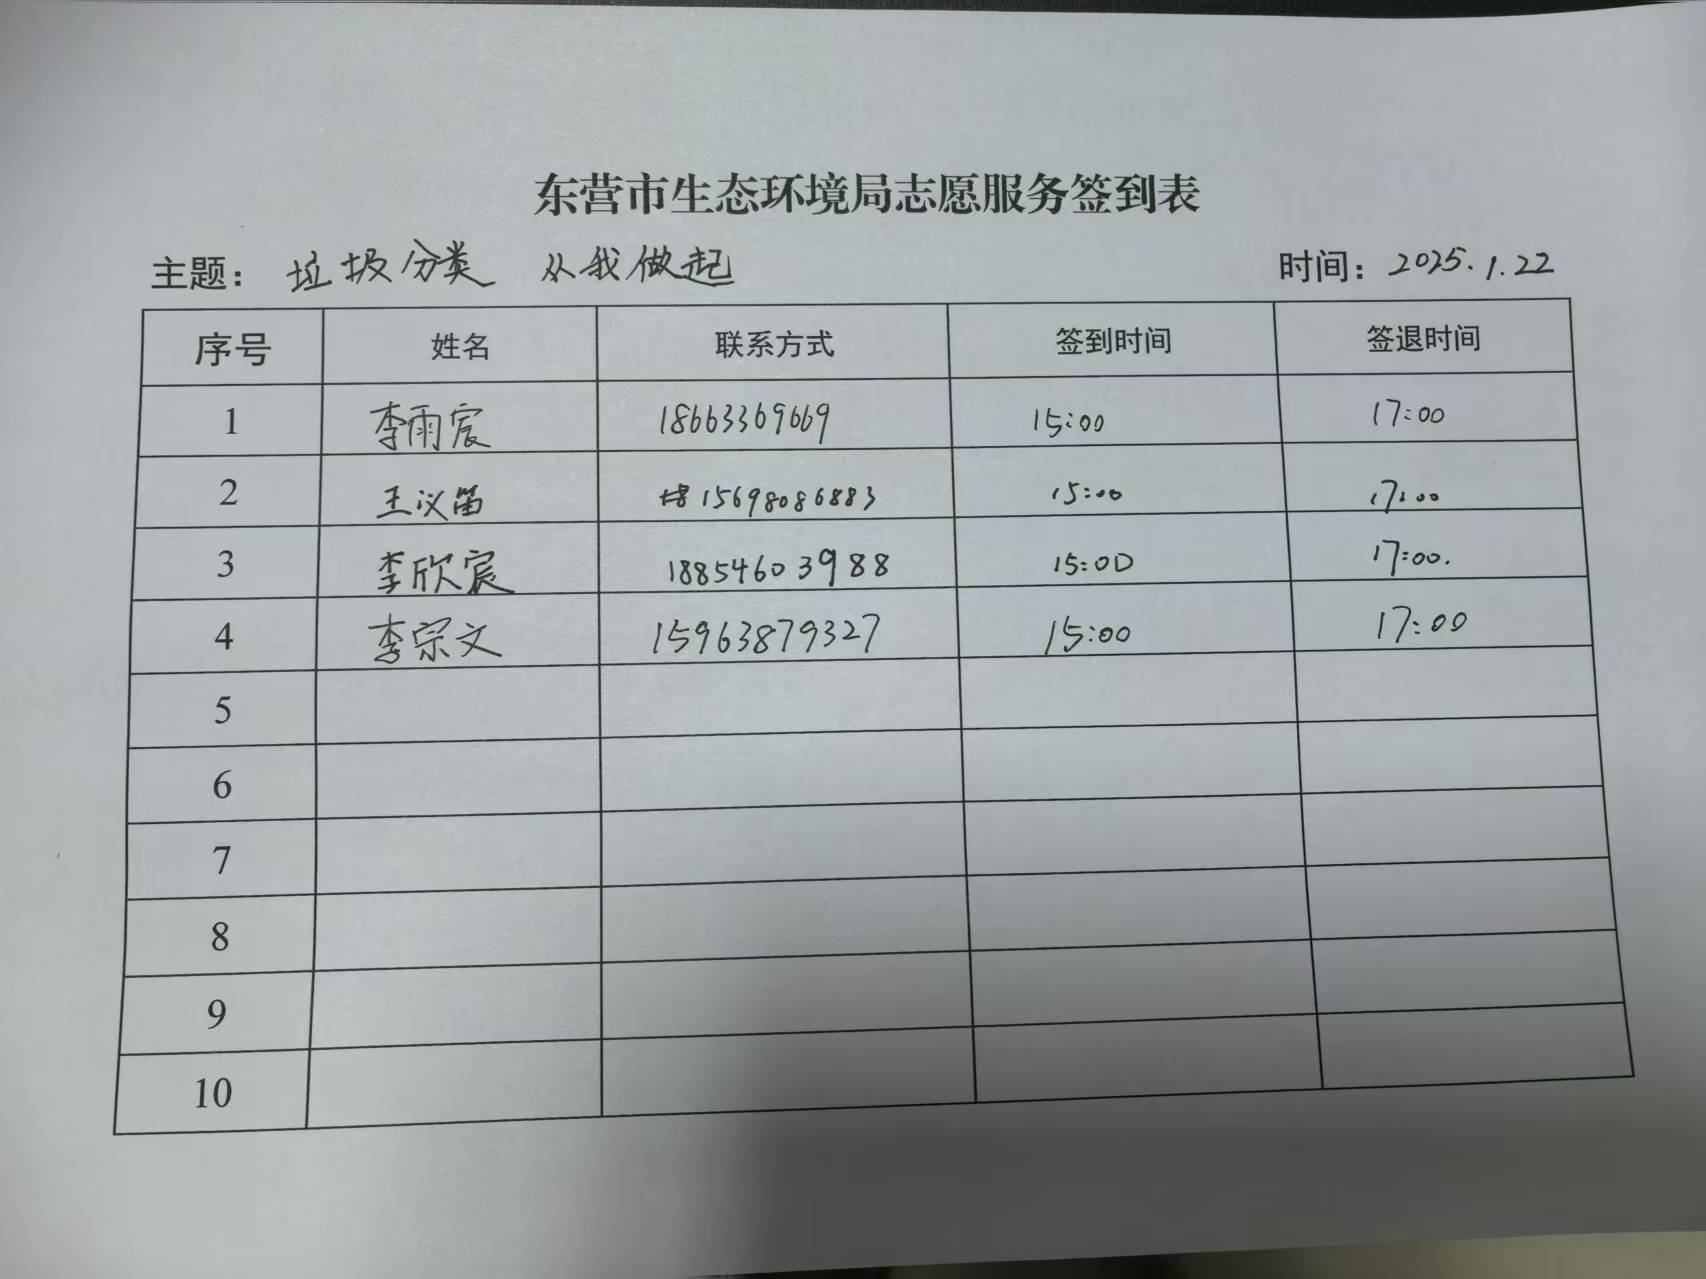 东营市生态环境局志愿服务签到表
主题： 垃圾分类 从我做起 时间：2025.1.22
序号 姓名 联系方式 签到时间 签退时间
1 李雨宸 18663369669 15:00 17:00
2 王议笛 15698086883 15:00 17:00
3 李欣宸 18854603988 15:00 17:00.
4 李宗文 15963879327 15:00 17:00
5
6
7
8
9
10